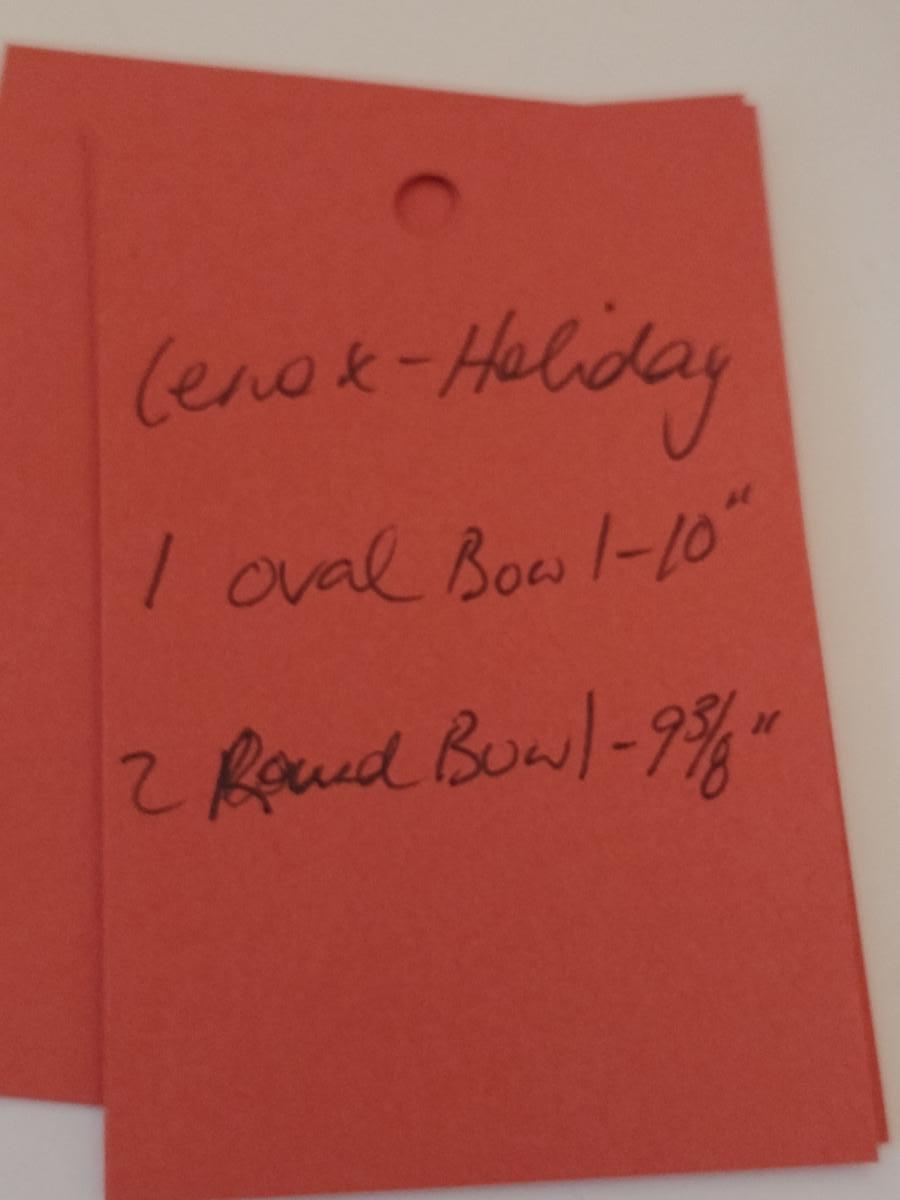 Lenox - Holiday
1 oval Bowl - 10"
2 Round Bowl - 9 3/8"